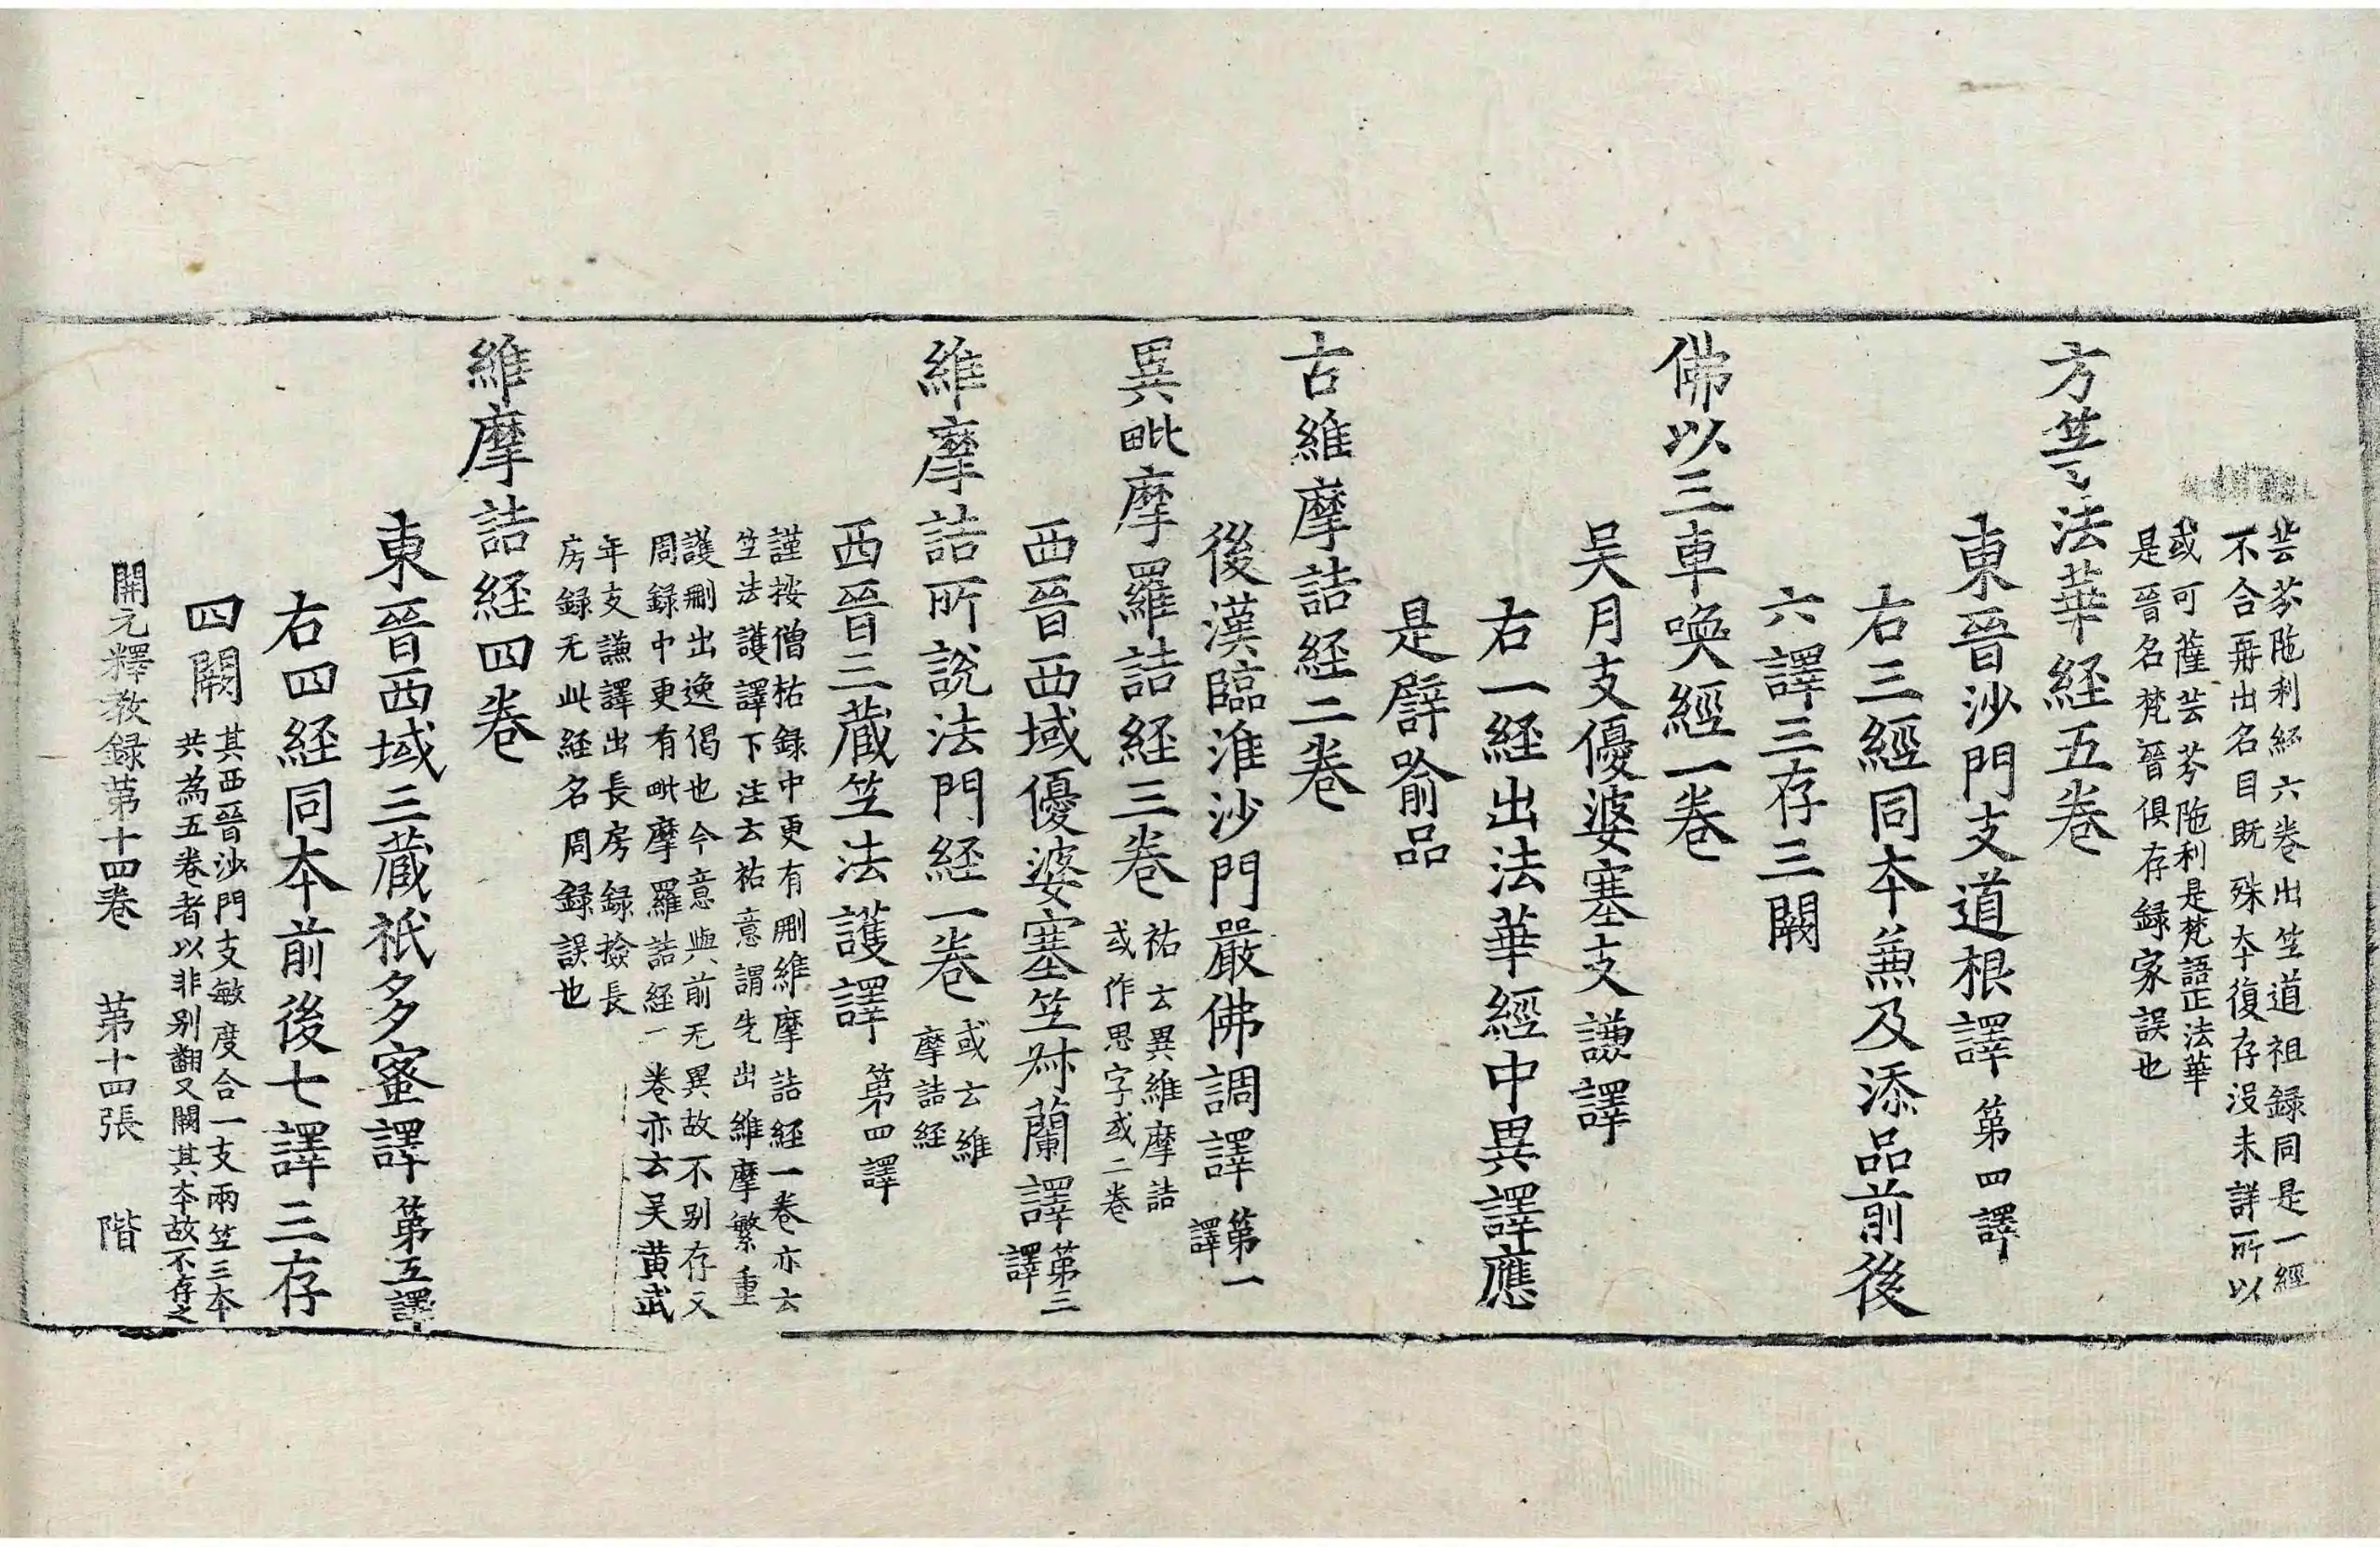 芸芬陁利経六卷出竺道祖録同是一經
不合再出名目既殊夲復存没未詳所以
或可薩芸芬陁利是梵語正法華
是晉名梵晉俱存録家誤也
方等法華経五卷
東晉沙門支道根譯第四譯
右三經同夲兼及添品前後
六譯三存三闕
佛以三車喚經一卷
吴月支優婆塞支謙譯
右一経出法華經中異譯應
是譬喻品
古維摩詰経二卷
後漢臨淮沙門嚴佛調譯第一
譯
異毗摩羅詰経三卷祐云異維摩詰
或作思字或二卷
西晉西域優婆塞竺叔蘭譯第三
譯
維摩詰所說法門経一卷或云維
摩詰経
西晉三藏竺法護譯第四譯
謹按僧祐録中更有刪維摩詰経一卷亦云
竺法護譯下注云祐意謂先出維摩繁重
護刪出逸偈也今意與前无異故不别存又
周録中更有毗摩羅詰経一卷亦云吴黄武
年支謙譯出長房録撿長
房録无此経名周録誤也
維摩詰経四卷
東晉西域三藏祇多蜜譯第五譯
右四経同夲前後七譯三存
四闕其西晉沙門支敏度合一支兩竺三夲
共為五卷者以非别翻又闕其夲故不存之
開元釋教録第十四卷　第十四張　階